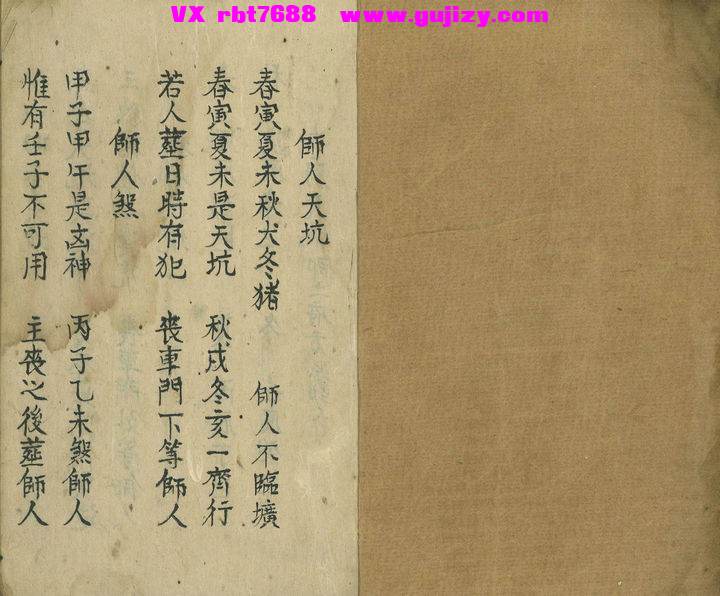 VX rbt7688 www.gujizy.com
師人天坑
春寅夏未秋犬冬猪 師人不臨壙
春寅夏未是天坑 秋戌冬亥一齊行
若人塟日時有犯 丧車門下等師人
師人煞
甲子甲午是凶神 丙子乙未煞師人
惟有壬子不可用 主丧之後塟師人